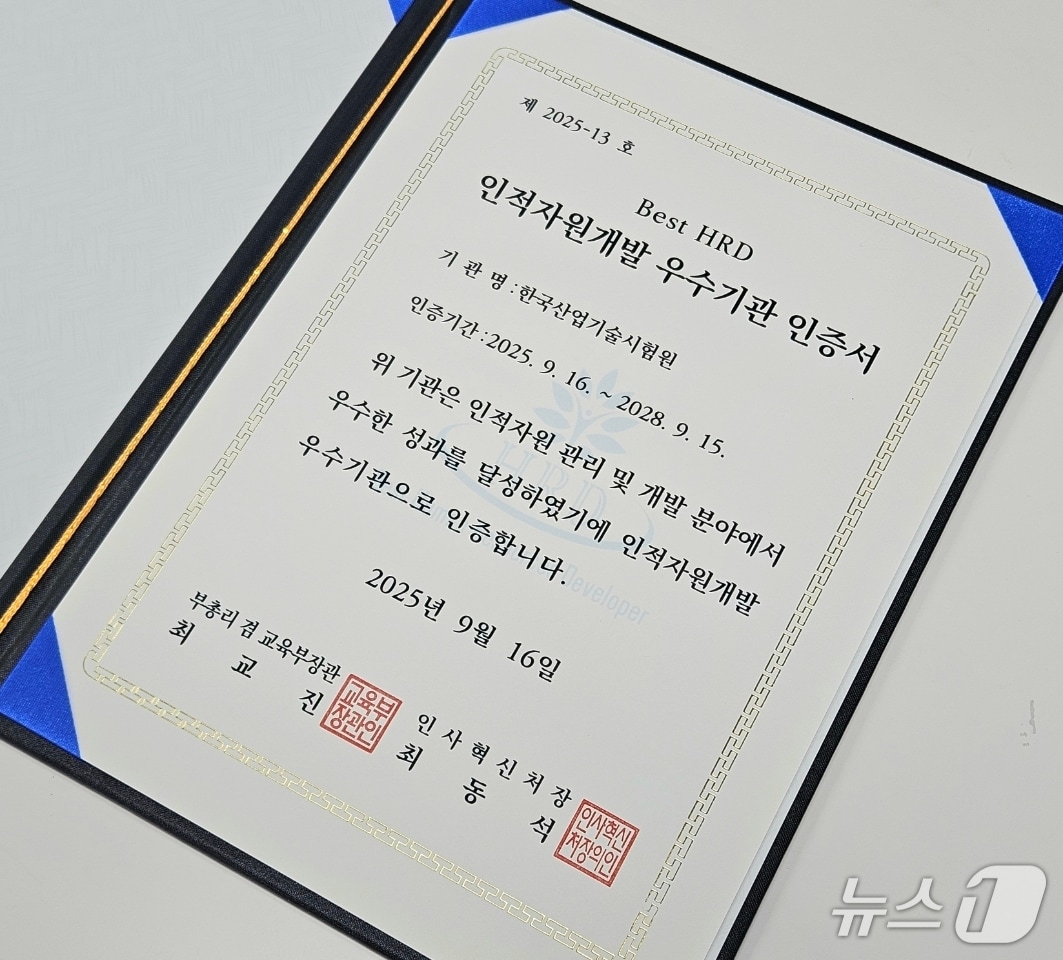 제 2025-13 호
Best HRD
인적자원개발 우수기관 인증서
기 관 명 : 한국산업기술시험원
인증기간 : 2025. 9. 16. ~ 2028. 9. 15.
위 기관은 인적자원 관리 및 개발 분야에서
우수한 성과를 달성하였기에 인적자원개발
우수기관으로 인증합니다.
HRD
Developer
2025년 9월 16일
부총리 겸 교육부장관
최 교 진
교육부
장관인
인 사 혁 신 처 장
최 동 석
인사혁신
처장의인
뉴스1